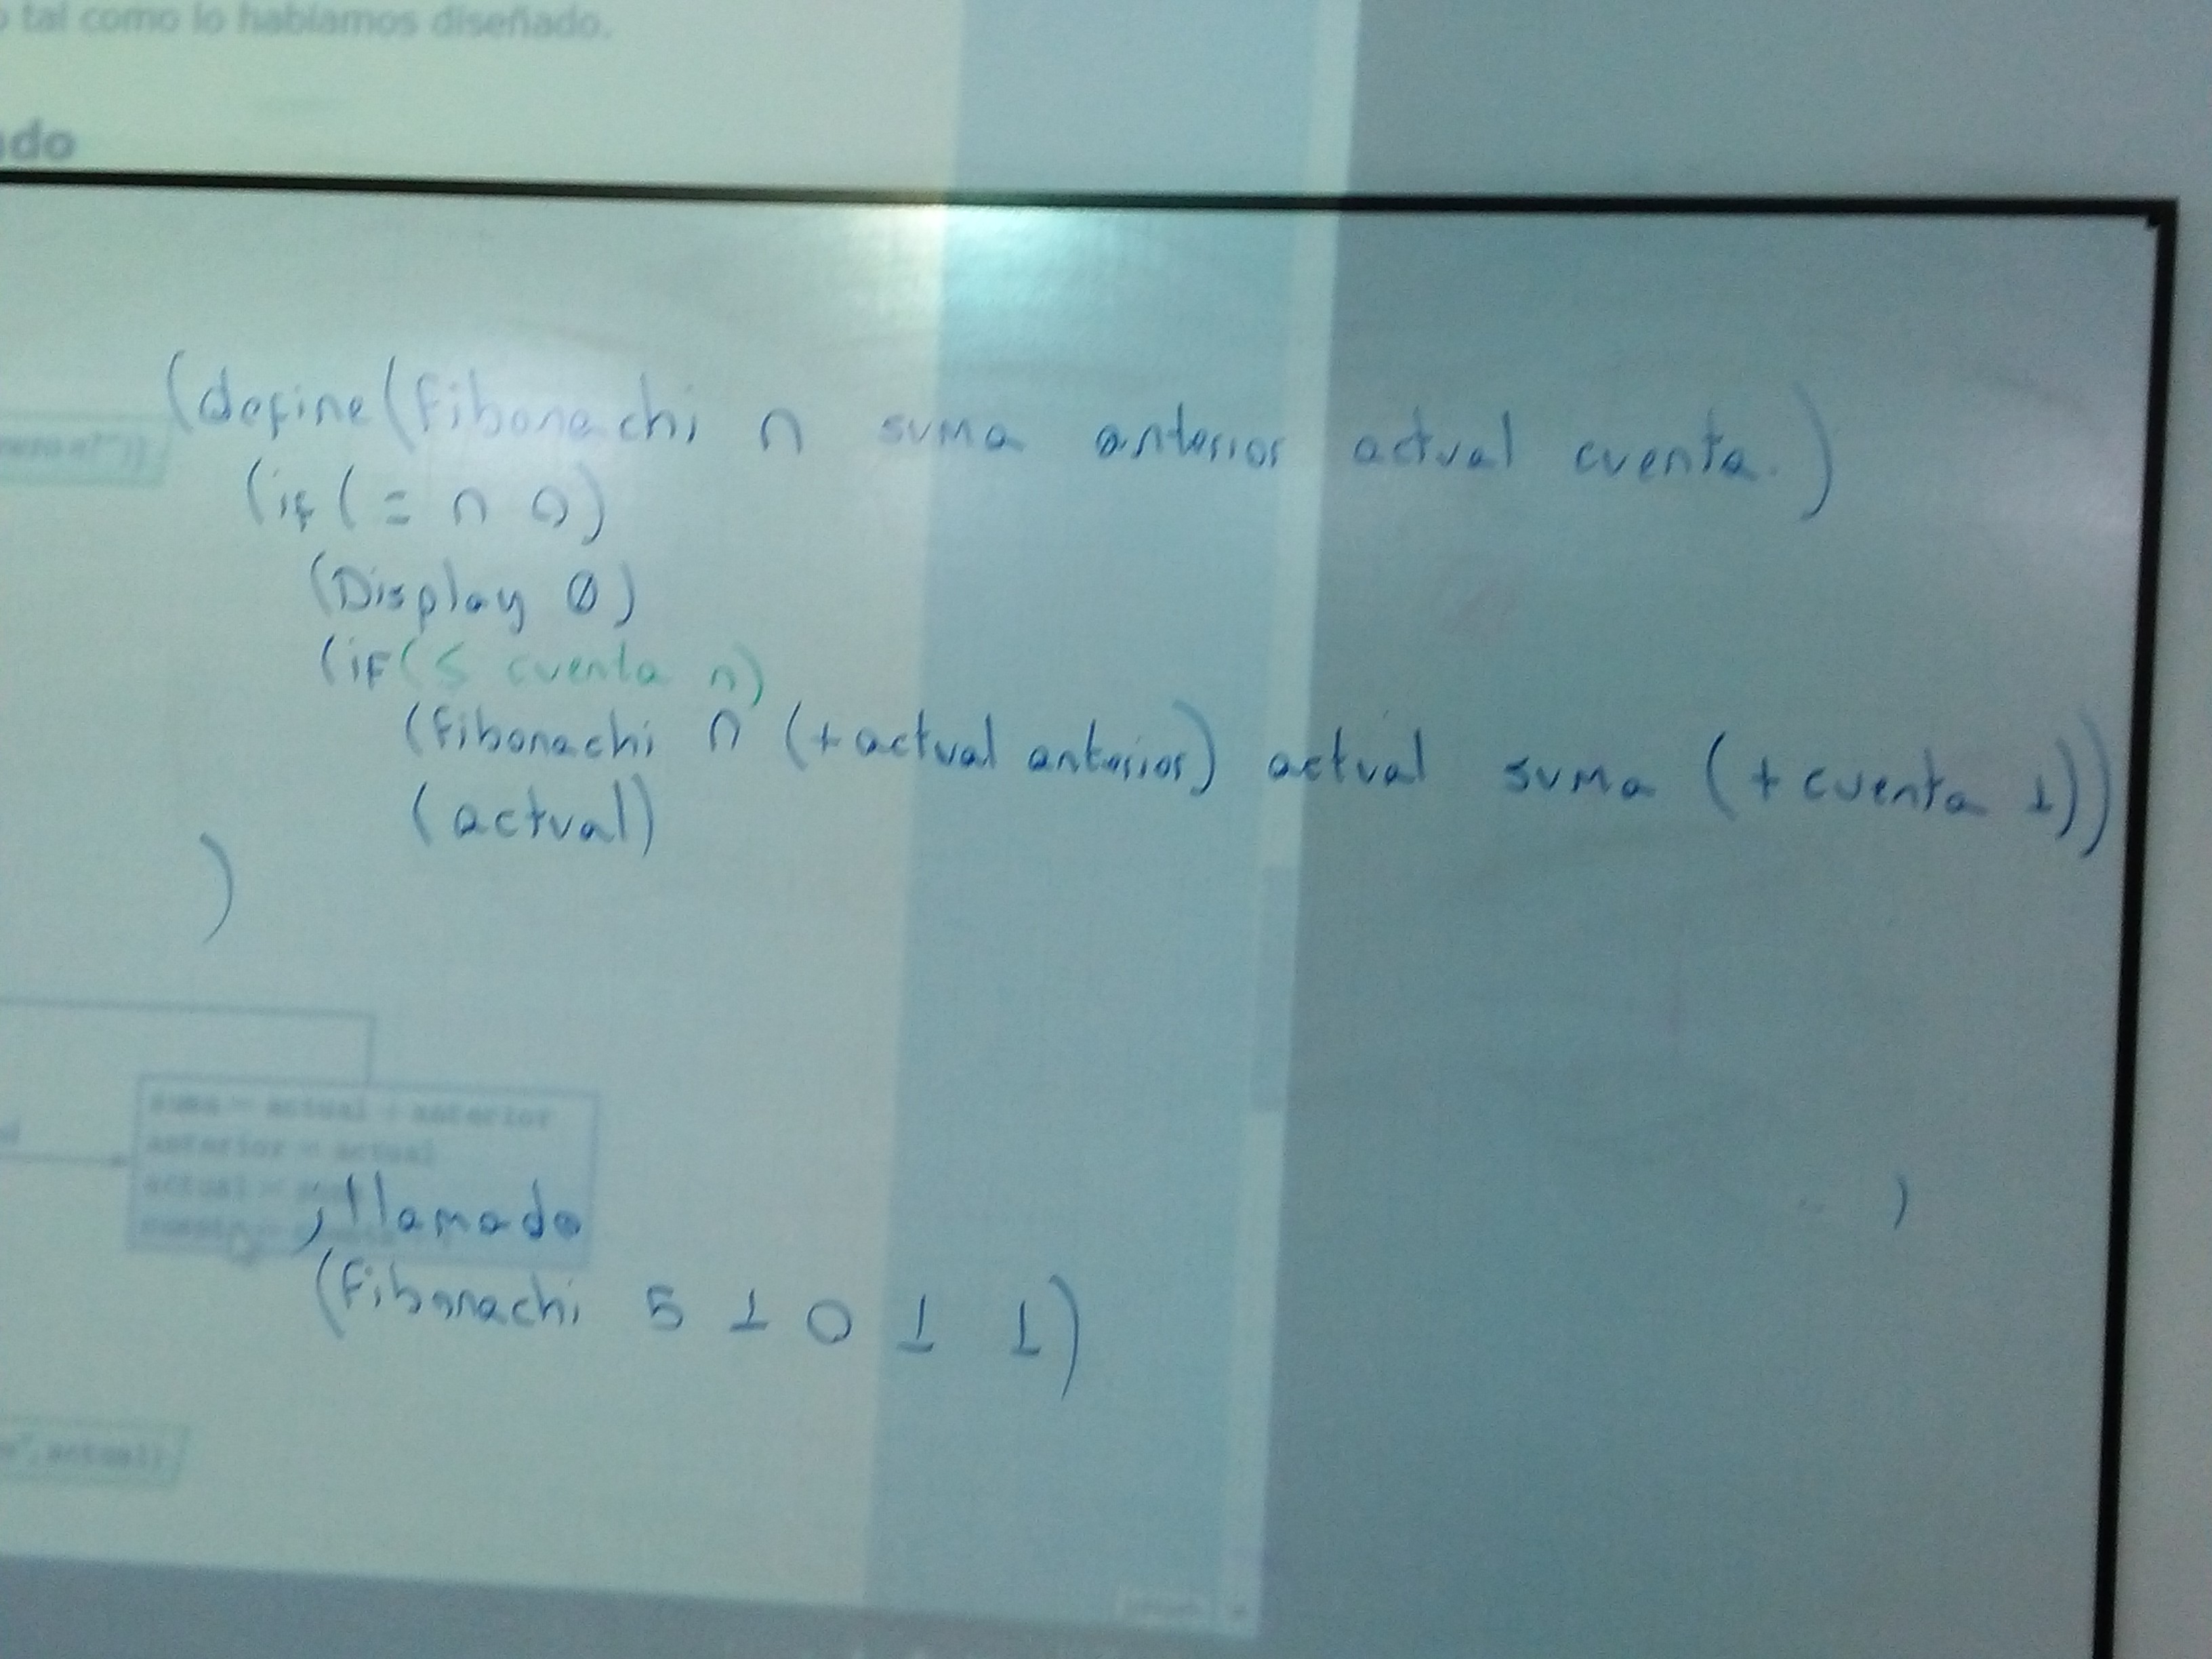 tal como lo habíamos diseñado.
(define (fibonachi n suma anterior actual cuenta.)
(if (= n 0)
(Display 0)
(if (≤ cuenta n)
(fibonachi n (+ actual anterior) actual suma (+ cuenta 1))
(actual)
)
suma = actual + anterior
anterior = actual
actual =
)
;llamado
(fibonachi 5 1 0 1 1)
, actual)